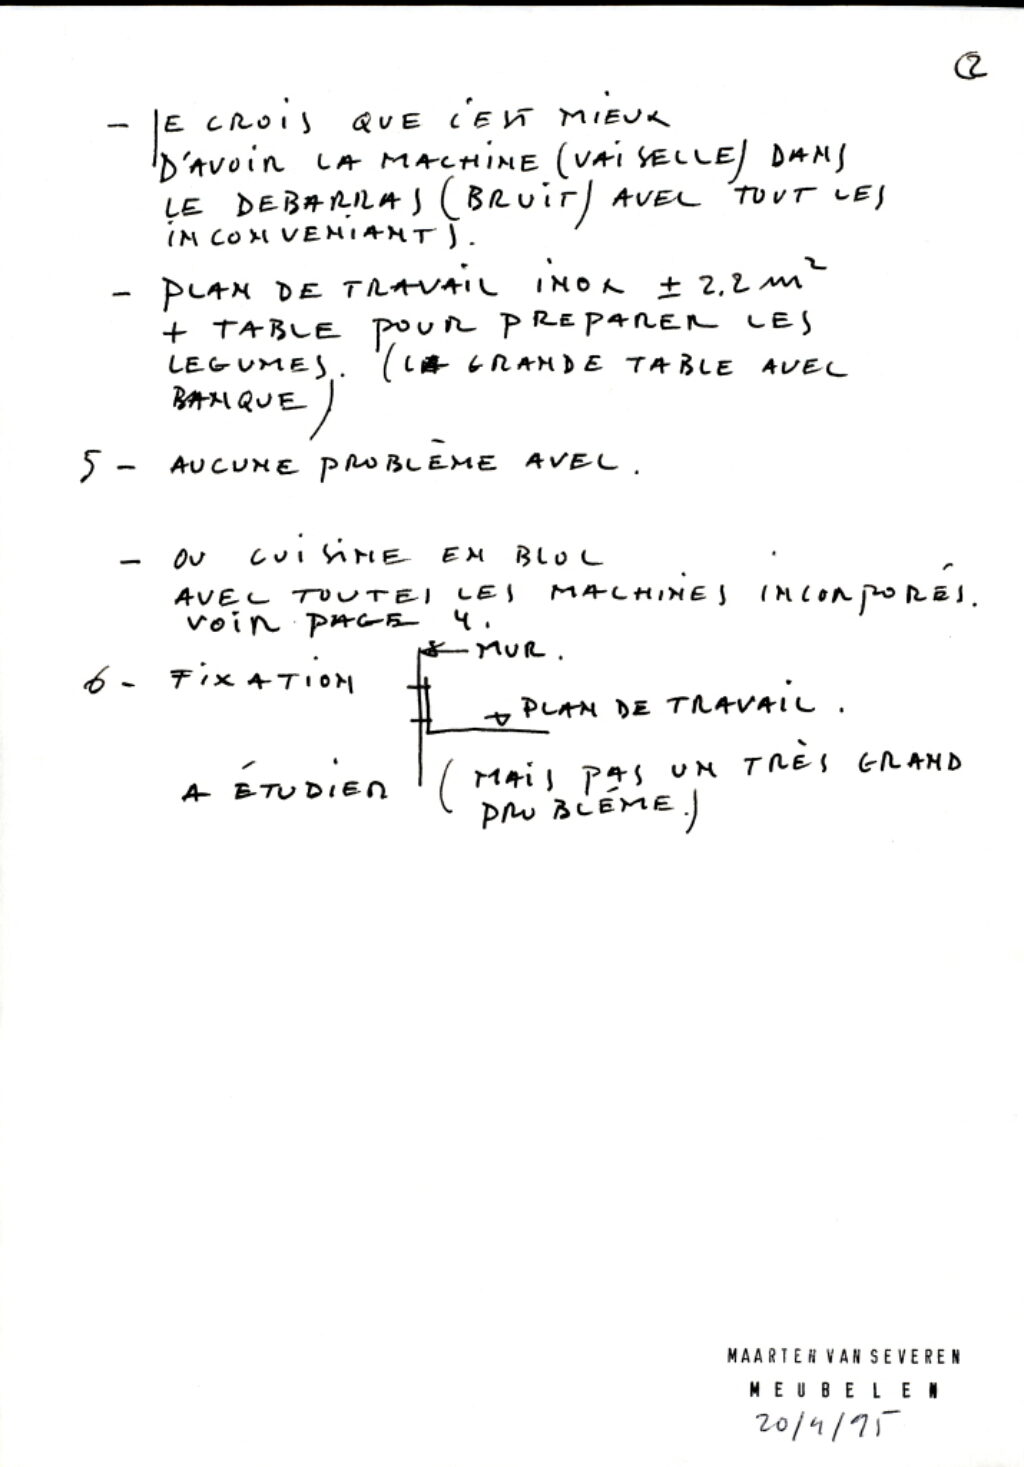 2
- JE CROIS QUE C'EST MIEUX
D'AVOIR LA MACHINE (VAISELLE) DANS
LE DEBARRAS (BRUIT) AVEC TOUT LES
INCONVENIANTS.
- PLAN DE TRAVAIL INOX ± 2.2 m²
+ TABLE POUR PREPARER LES
LEGUMES. (LA GRANDE TABLE AVEC
BANQUE)
5 - AUCUNE PROBLÈME AVEC.
- OU CUISINE EN BLOC
AVEC TOUTES LES MACHINES INCORPORÉS.
VOIR PAGE 4.
MUR.
6 - FIXATION
PLAN DE TRAVAIL.
A ÉTUDIER (MAIS PAS UN TRÈS GRAND
PROBLÉME.)
MAARTEN VAN SEVEREN
MEUBELEN
20/4/95